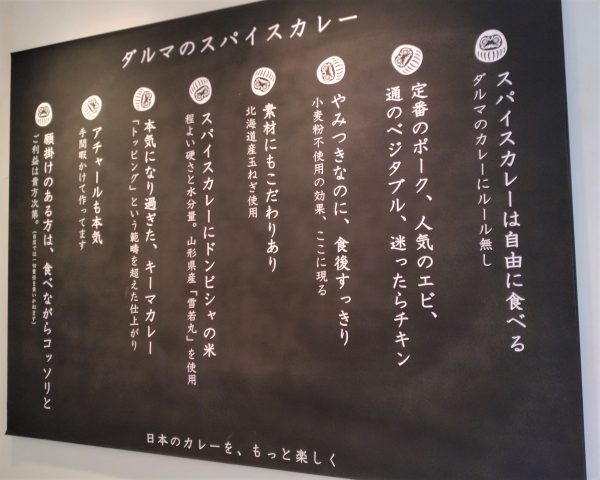 ダルマのスパイスカレー
スパイスカレーは自由に食べる
ダルマのカレーにルール無し
定番のポーク、人気のエビ、
通のベジタブル、迷ったらチキン
やみつきなのに、食後すっきり
小麦粉不使用の効果 ここに現る
素材にもこだわりあり
北海道産玉ねぎ使用
スパイスカレーにドンピシャの米
程よい硬さと水分量。山形県産「雪若丸」を使用
本気になり過ぎた、キーマカレー
「トッピング」という範疇を超えた仕上がり
アチャールも本気
手間暇かけて作ってます
願掛けのある方は、食べながらコッソリと
ご利益は貴方次第。
日本のカレーを、もっと楽しく